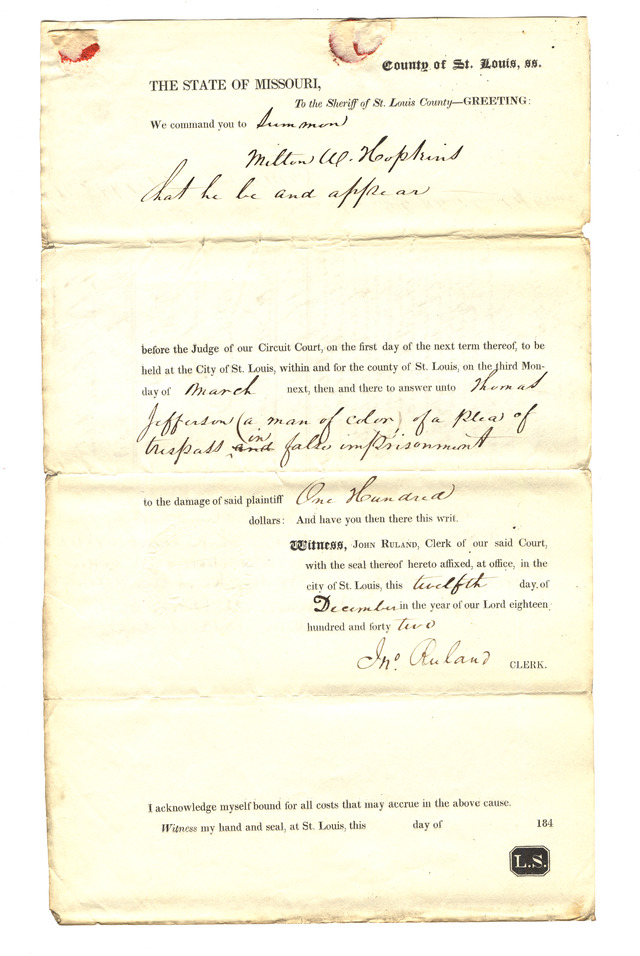 County of St. Louis, ss.
THE STATE OF MISSOURI,
To the Sheriff of St. Louis County—GREETING:
We command you to Summon
Milton W. Hopkins
that he be and appear
before the Judge of our Circuit Court, on the first day of the next term thereof, to be
held at the City of St. Louis, within and for the county of St. Louis, on the third Mon-
day of March next, then and there to answer unto Thomas
Jefferson (a man of color) of a plea of
in
trespass and false imprisonment
to the damage of said plaintiff One Hundred
dollars: And have you then there this writ.
Witness, JOHN RULAND, Clerk of our said Court,
with the seal thereof hereto affixed, at office, in the
city of St. Louis, this twelfth day of
December in the year of our Lord eighteen
hundred and forty two
Jno. Ruland CLERK.
I acknowledge myself bound for all costs that may accrue in the above cause.
Witness my hand and seal, at St. Louis, this day of 184
L.S.